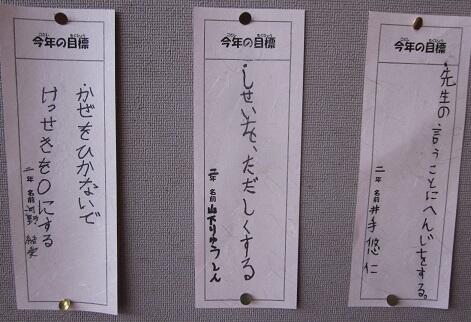 今年の目標
・先生の言うことにへんじをする。
二年 名前 井手悠仁
今年の目標
・しせいを、ただしくする
二年 名前 山下りゅうしん
今年の目標
・かぜをひかないで
けっせきを0にする
二年 名前